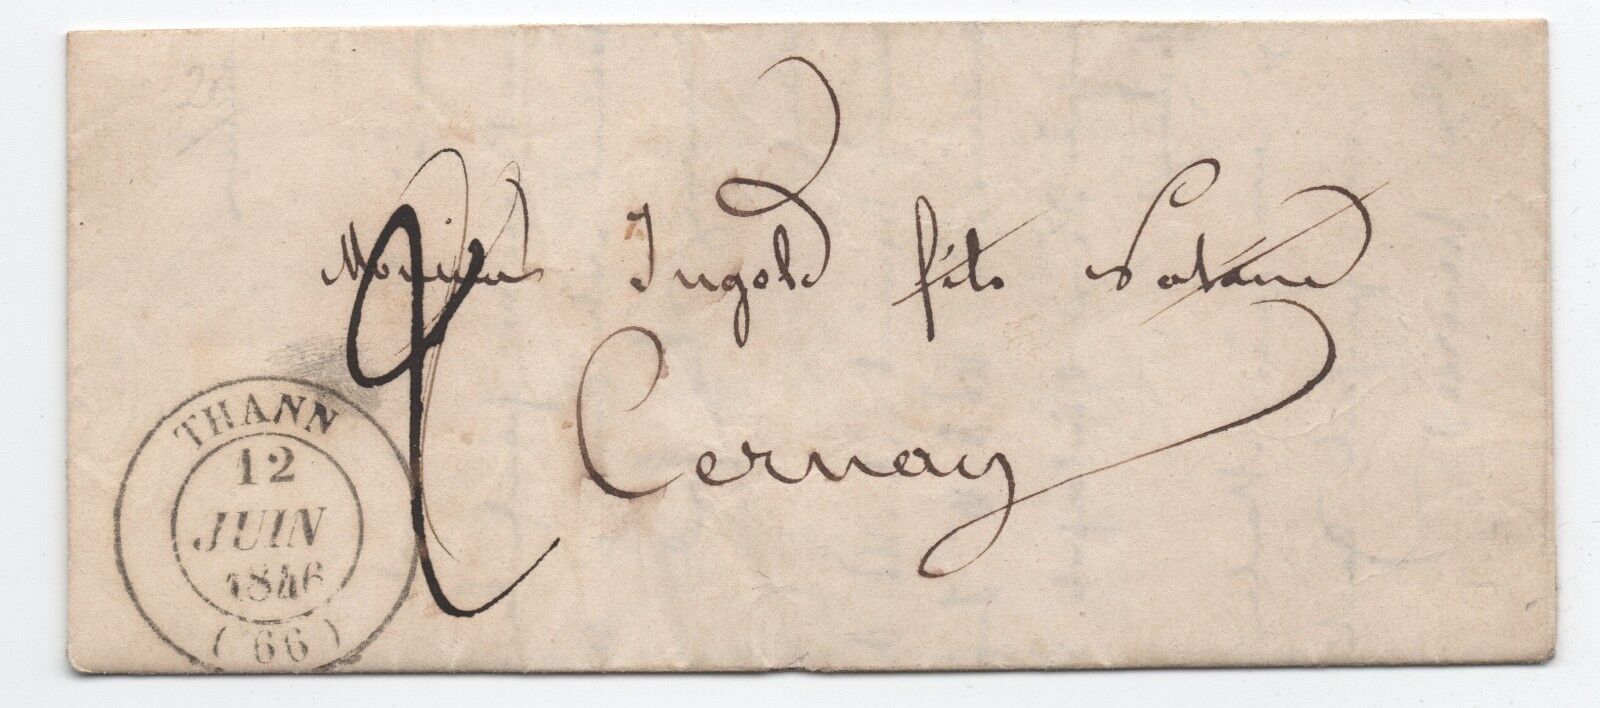 Monsieur Ingold fils
Cernay
2
THANN
12
JUIN
1846
(66)